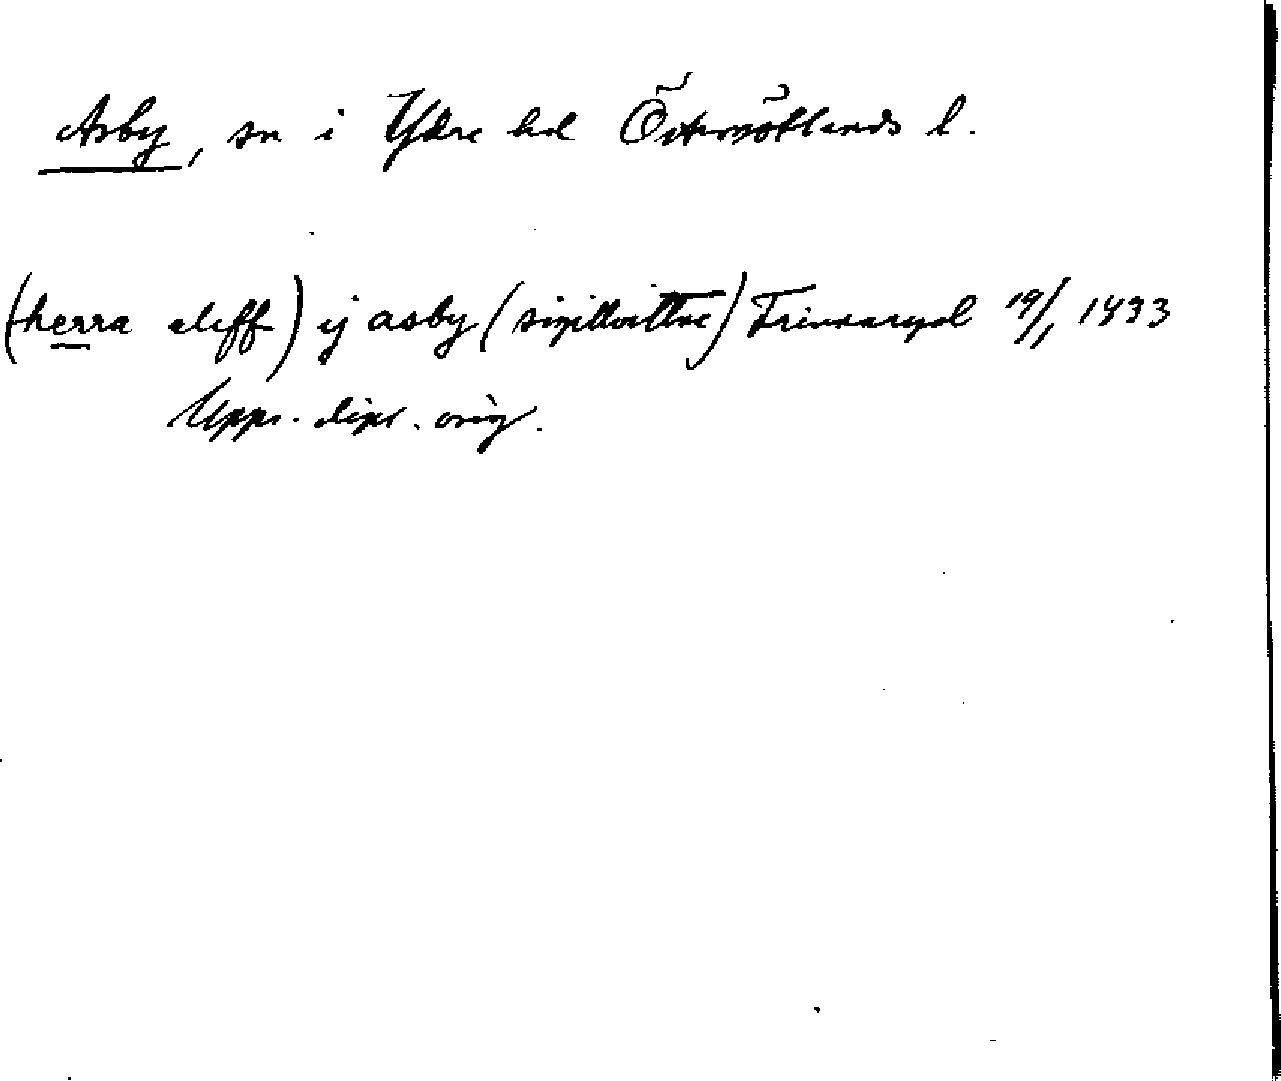 Asby, sn i Ydre hd Östergötlands l.
(herra eleff) ij asby (sigillvittne) Frinnaryd 19/1 1433
Upps. dipl. orig.